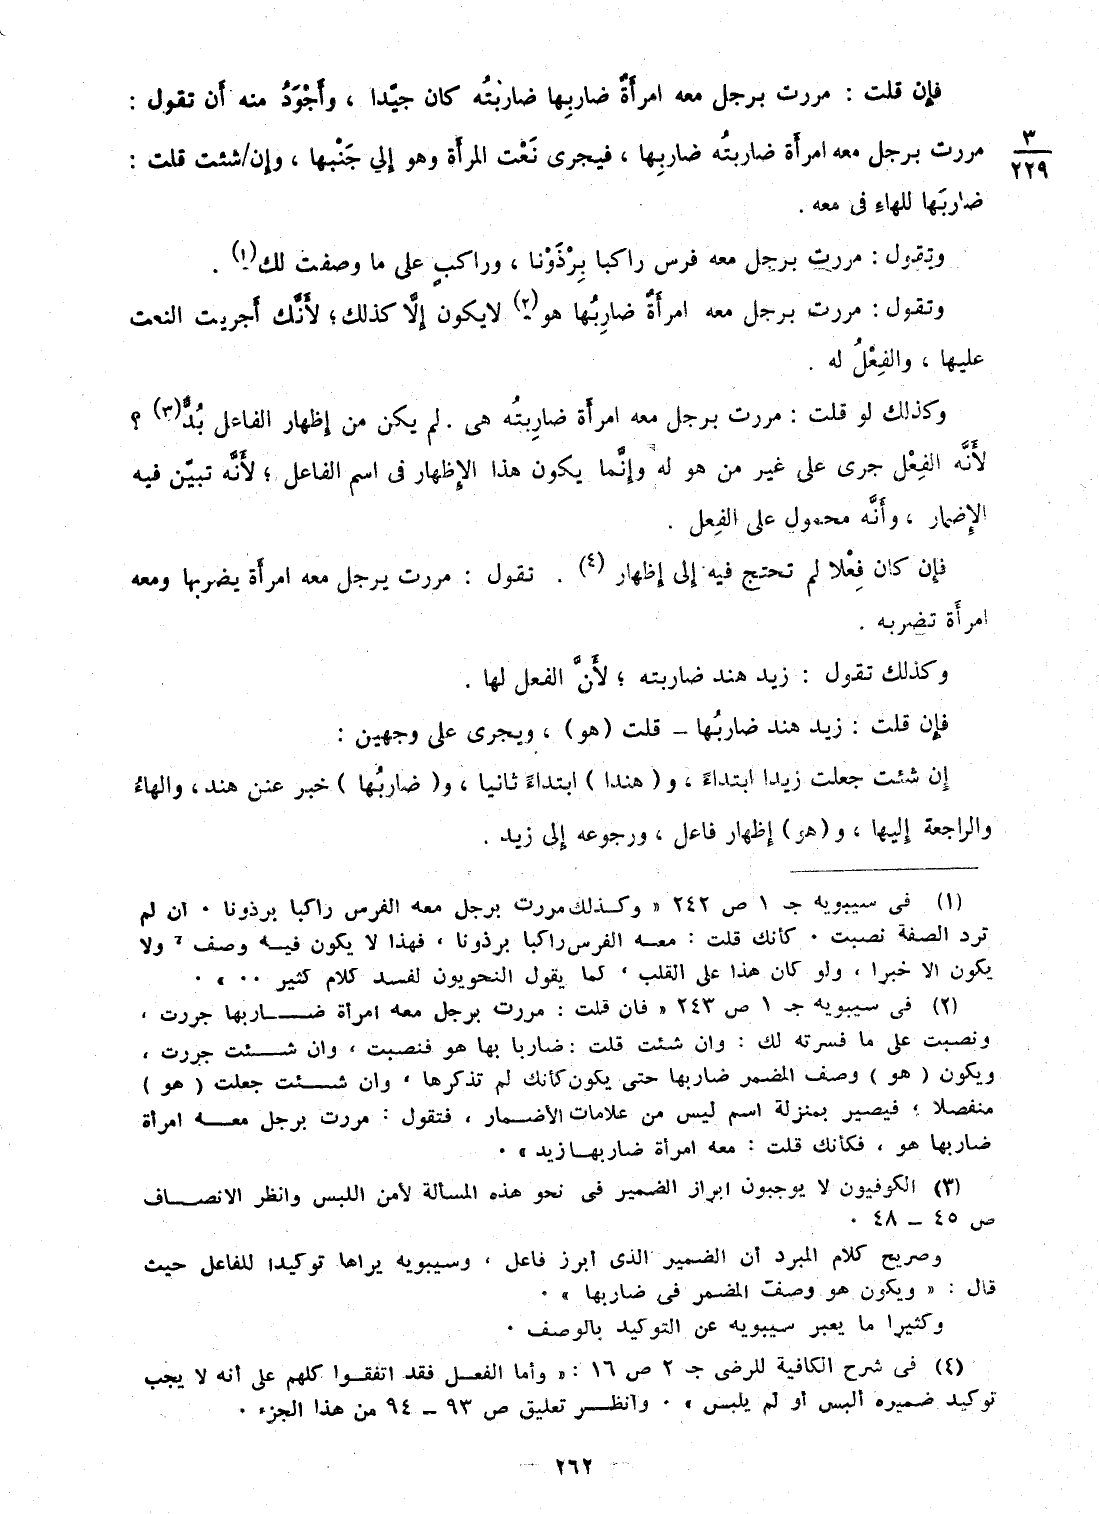 فإن قلت : مررت برجل معه امرأَةٌ ضارِبِها ضاربَتُه كان جيّدا ، وأَجْوَدُ منه أَن تقول :
٣
٢٢٩
مررت برجل معه امرأَة ضاربتُه ضارِبِها ، فيجرى نَعْت المرأَة وهو إلي جَنْبها ، وإن/شئت قلت :
ضاربَها للهاءِ فى معه .
وتقول : مررت برجل معه فرس راكبا بِرْذَوْنا ، وراكبٍ على ما وصفت لك(١) .
وتقول : مررت برجل معه امرأَةٌ ضارِبُها هو(٢) لايكون إلَّا كذلك؛ لأَنَّك أَجريت النعت
عليها ، والفِعْلُ له .
وكذلك لو قلت : مررت برجل معه امرأَة ضارِبتُه هى . لم يكن من إظهار الفاعل بُدٌّ(٣) ؟
لأَنَّه الفِعْل جرى على غير من هو له وإنَّما يكون هذا الإظهار فى اسم الفاعل ؛ لأَنَّه تبيّن فيه
الإضمار ، وأَنَّه محمول على الفِعل .
فإن كان فِعْلا لم تحتج فيه إلى إظهار (٤) . تقول : مررت برجل معه امرأَة يضربها ومعه
امرأَة تضربه .
وكذلك تقول : زيد هند ضاربته ؛ لأَنَّ الفعل لها .
فإن قلت : زيد هند ضاربُها – قلت (هو) ، ويجرى على وجهين :
إن شئت جعلت زيدا ابتداءً ، و( هندا ) ابتداءً ثانيا ، و( ضاربُها ) خبر عنن هند، والهاءُ
والراجعة إليها ، و(هو) إظهار فاعل ، ورجوعه إلى زيد .
(١) فى سيبويه جـ ١ ص ٢٤٢ « وكذلك مررت برجل معه الفرس راكبا برذونا ٠ ان لم
ترد الصفة نصبت ٠ كأنك قلت : معه الفرس راكبا برذونا ، فهذا لا يكون فيه وصف ، ولا
يكون الا خبرا ، ولو كان هذا على القلب ، كما يقول النحويون لفسد كلام كثير ٠٠ » ٠
(٢) فى سيبويه جـ ١ ص ٢٤٣ « فان قلت : مررت برجل معه امرأة ضاربها جررت ،
ونصبت على ما فسرته لك : وان شئت قلت : ضاربا بها هو فنصبت ، وان شئت جررت ،
ويكون ( هو ) وصف المضمر ضاربها حتى يكون كأنك لم تذكرها ، وان شئت جعلت ( هو )
منفصلا ؛ فيصير بمنزلة اسم ليس من علامات الأضمار ، فتقول : مررت برجل معه امرأة
ضاربها هو ، فكأنك قلت : معه امرأة ضاربها زيد » ٠
(٣) الكوفيون لا يوجبون ابراز الضمير فى نحو هذه المسألة لأمن اللبس وانظر الانصاف
ص ٤٥ – ٤٨ ٠
وصريح كلام المبرد أن الضمير الذى أبرز فاعل ، وسيبويه يراها توكيدا للفاعل حيث
قال : « ويكون هو وصف المضمر فى ضاربها » ٠
وكثيرا ما يعبر سيبويه عن التوكيد بالوصف ٠
(٤) فى شرح الكافية للرضى جـ ٢ ص ١٦ : « وأما الفعل فقد اتفقوا كلهم على أنه لا يجب
توكيد ضميره ألبس أو لم يلبس » ٠ وأنظر تعليق ص ٩٣ – ٩٤ من هذا الجزء ٠
– ٢٦٢ –